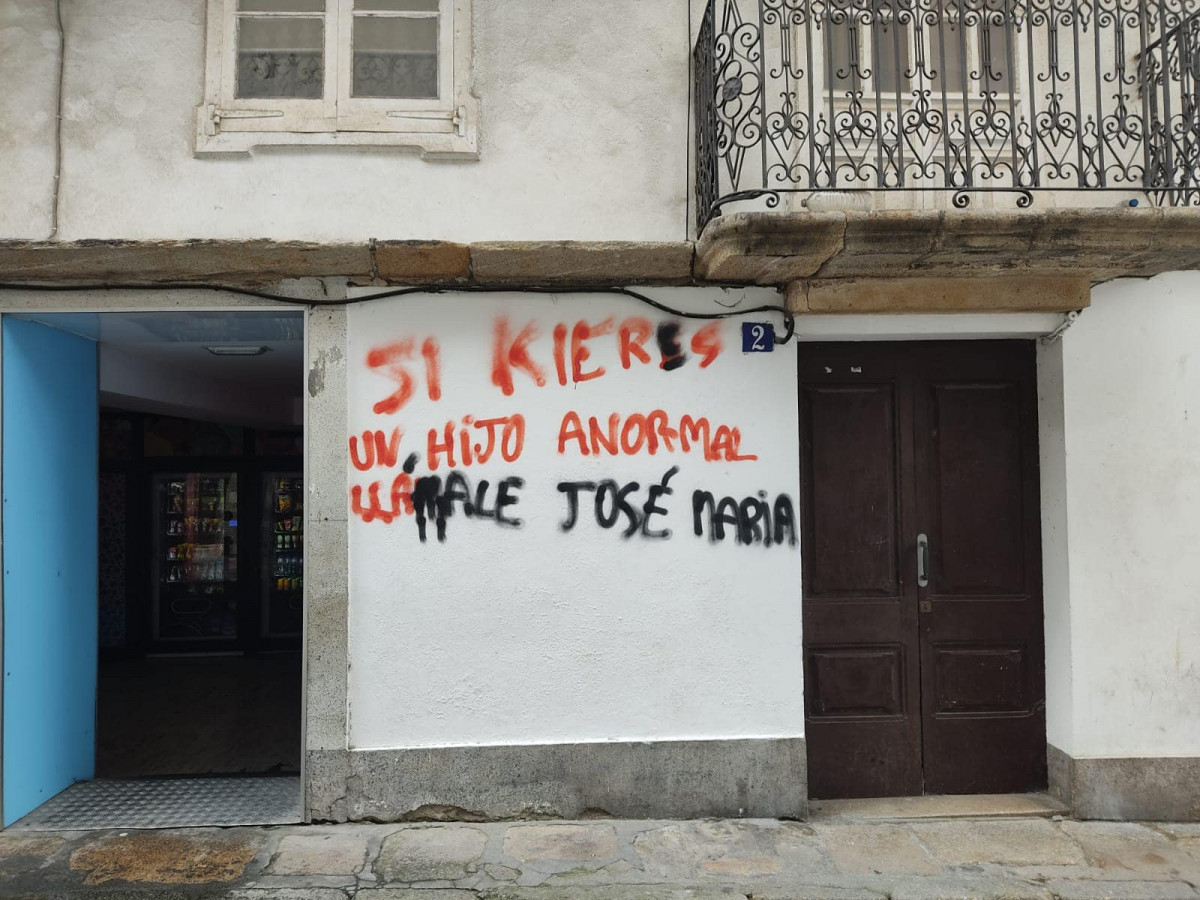 SI KIERES
2
UN HIJO ANORMAL
LLÁMALE JOSÉ MARIA